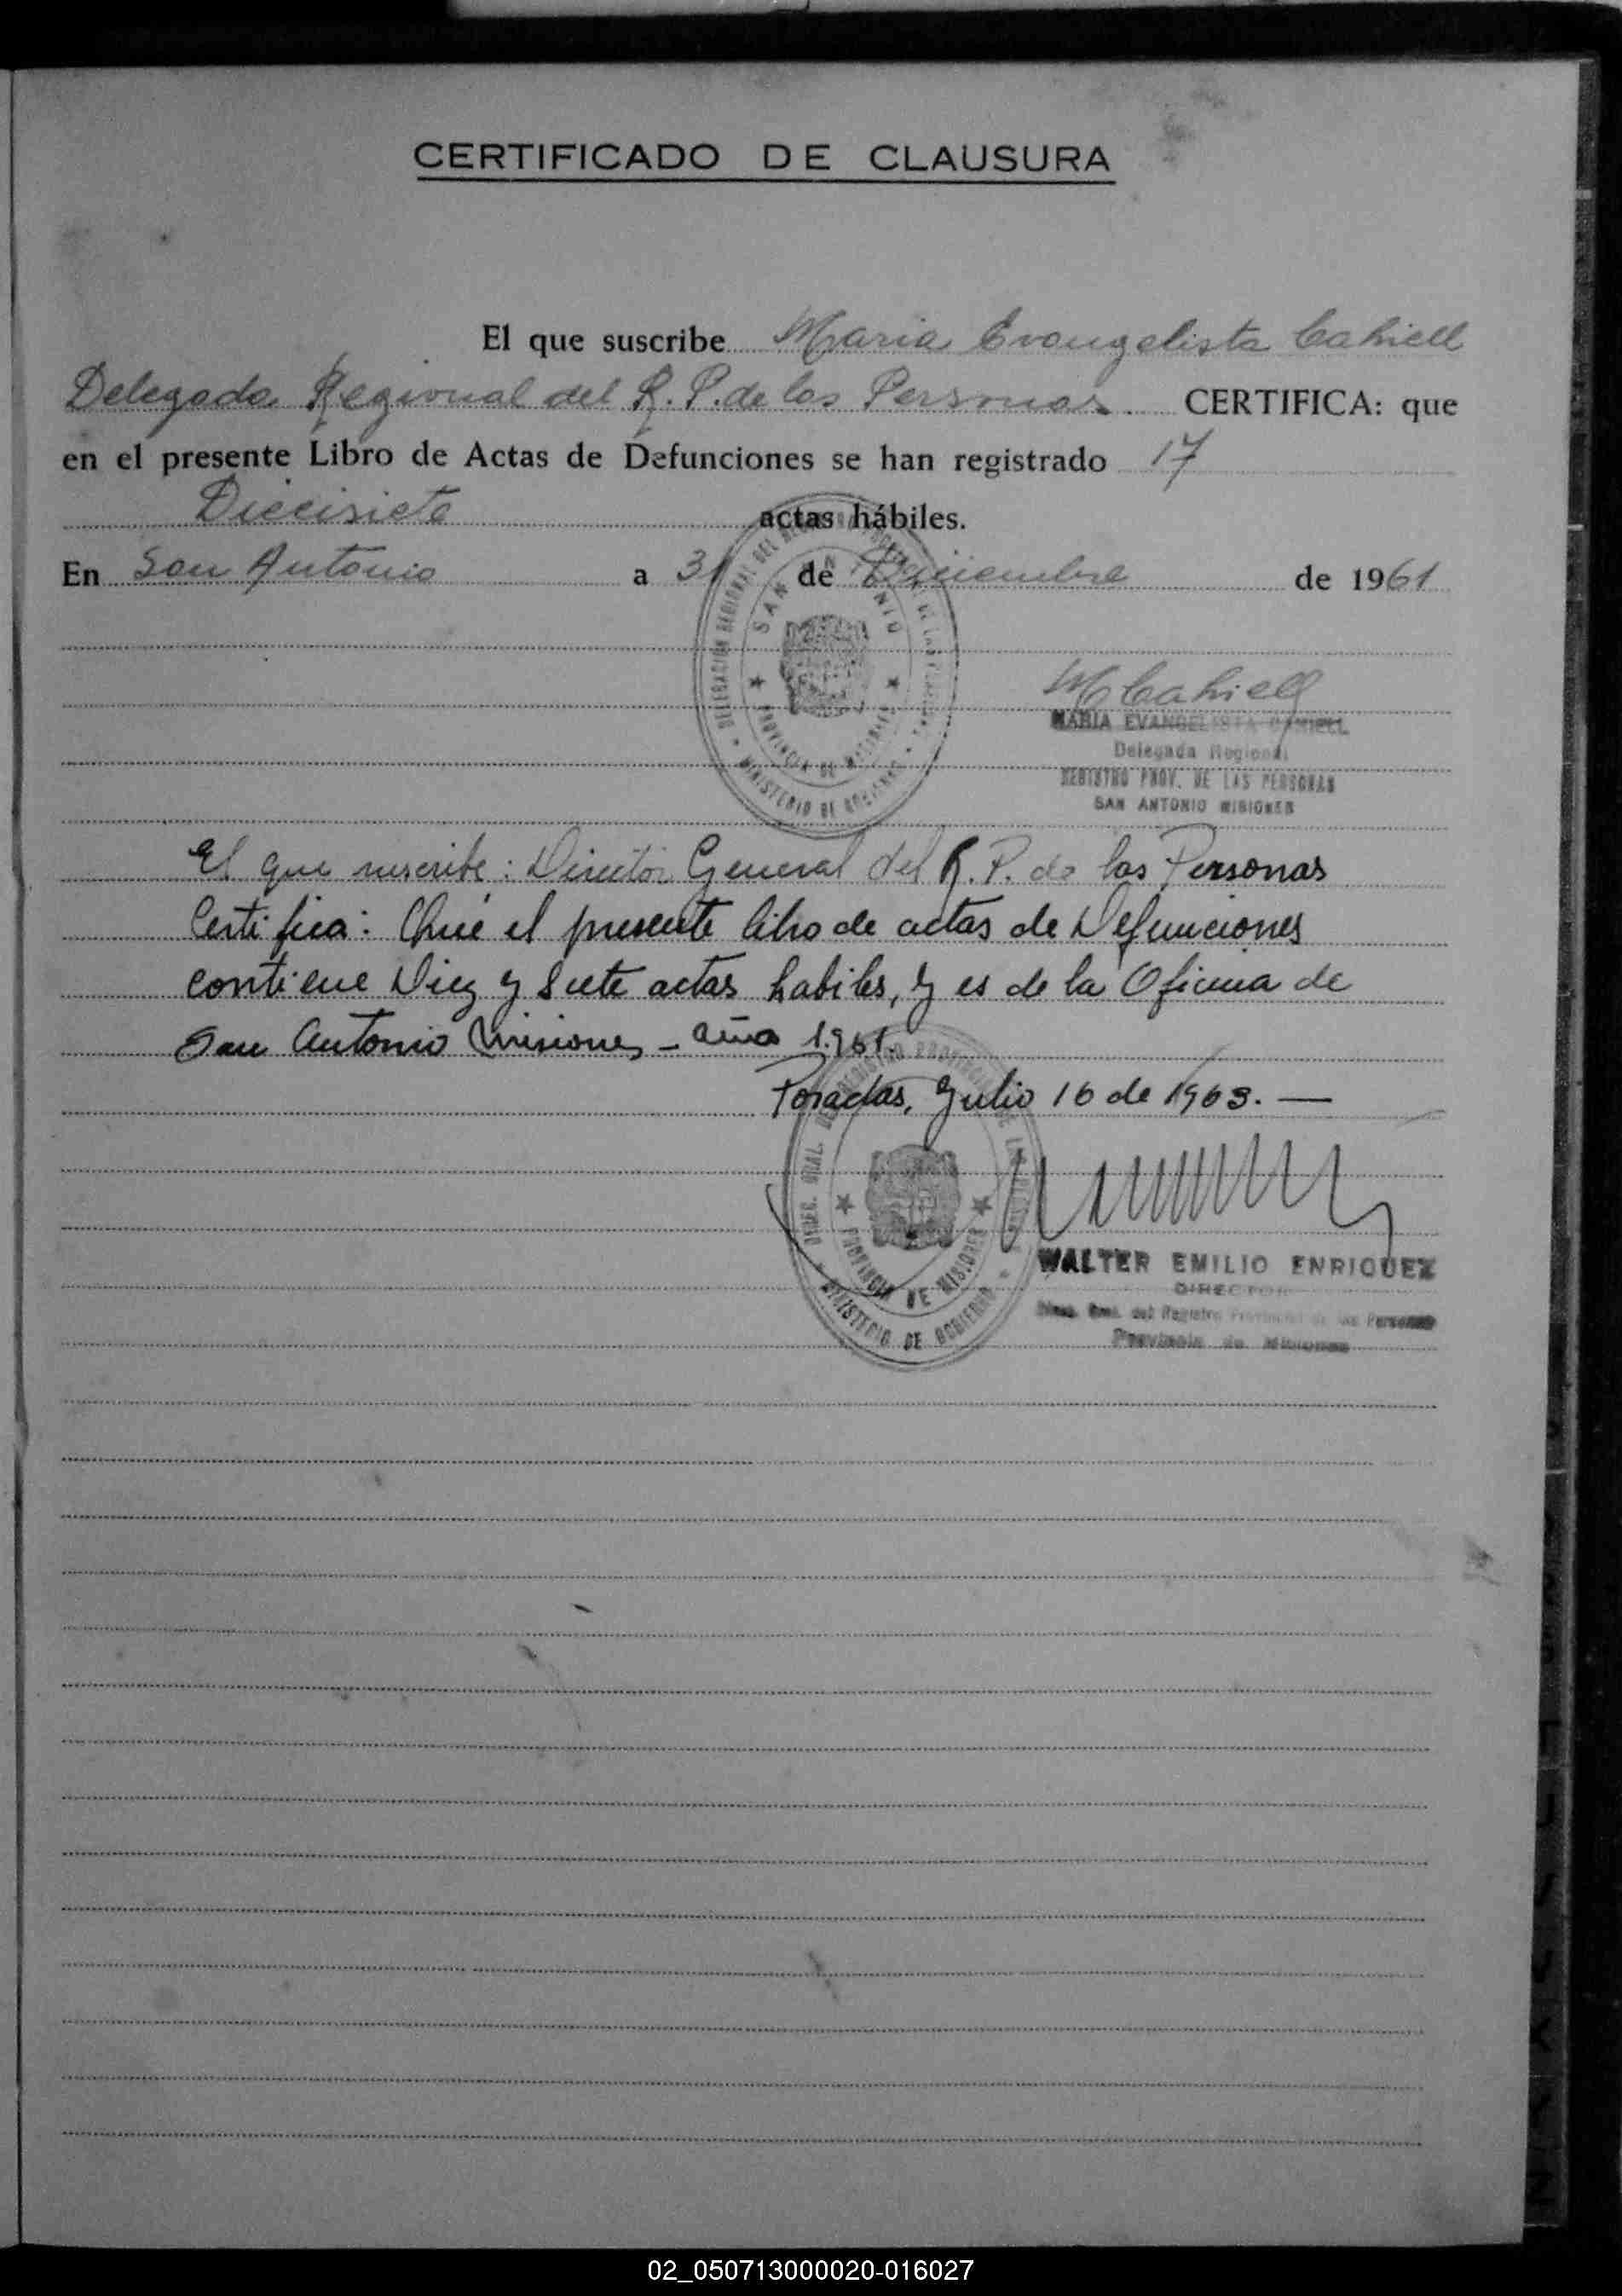 CERTIFICADO DE CLAUSURA
El que suscribe Maria Evangelista Cahiell
Delegada Regional del R. P. de las Personas. CERTIFICA: que
en el presente Libro de Actas de Defunciones se han registrado 17
Diecisiete actas hábiles.
En San Antonio a 31 de Diciembre de 1961
DELEGACIÓN REGIONAL DEL REGISTRO PROVINCIAL DE LAS PERSONAS
SAN ANTONIO
PROVINCIA DE MISIONES
MINISTERIO DE GOBIERNO
MCahiell
MARIA EVANGELISTA CAHIELL
Delegada Regional
REGISTRO PROV. DE LAS PERSONAS
SAN ANTONIO MISIONES
El que suscribe: Director General del R. P. de las Personas
Certifica: Que el presente libro de actas de Defunciones
contiene Diez y Siete actas habiles, y es de la Oficina de
San Antonio Misiones - año 1.961.
Posadas, Julio 16 de 1963. —
DIREC. GRAL. DEL REGISTRO PROVINCIAL DE LAS PERSONAS
PROVINCIA DE MISIONES
MINISTERIO DE GOBIERNO
WALTER EMILIO ENRIQUEZ
DIRECTOR
Direc. Gral. del Registro Provincial de las Personas
Provincia de Misiones
02_050713000020-016027